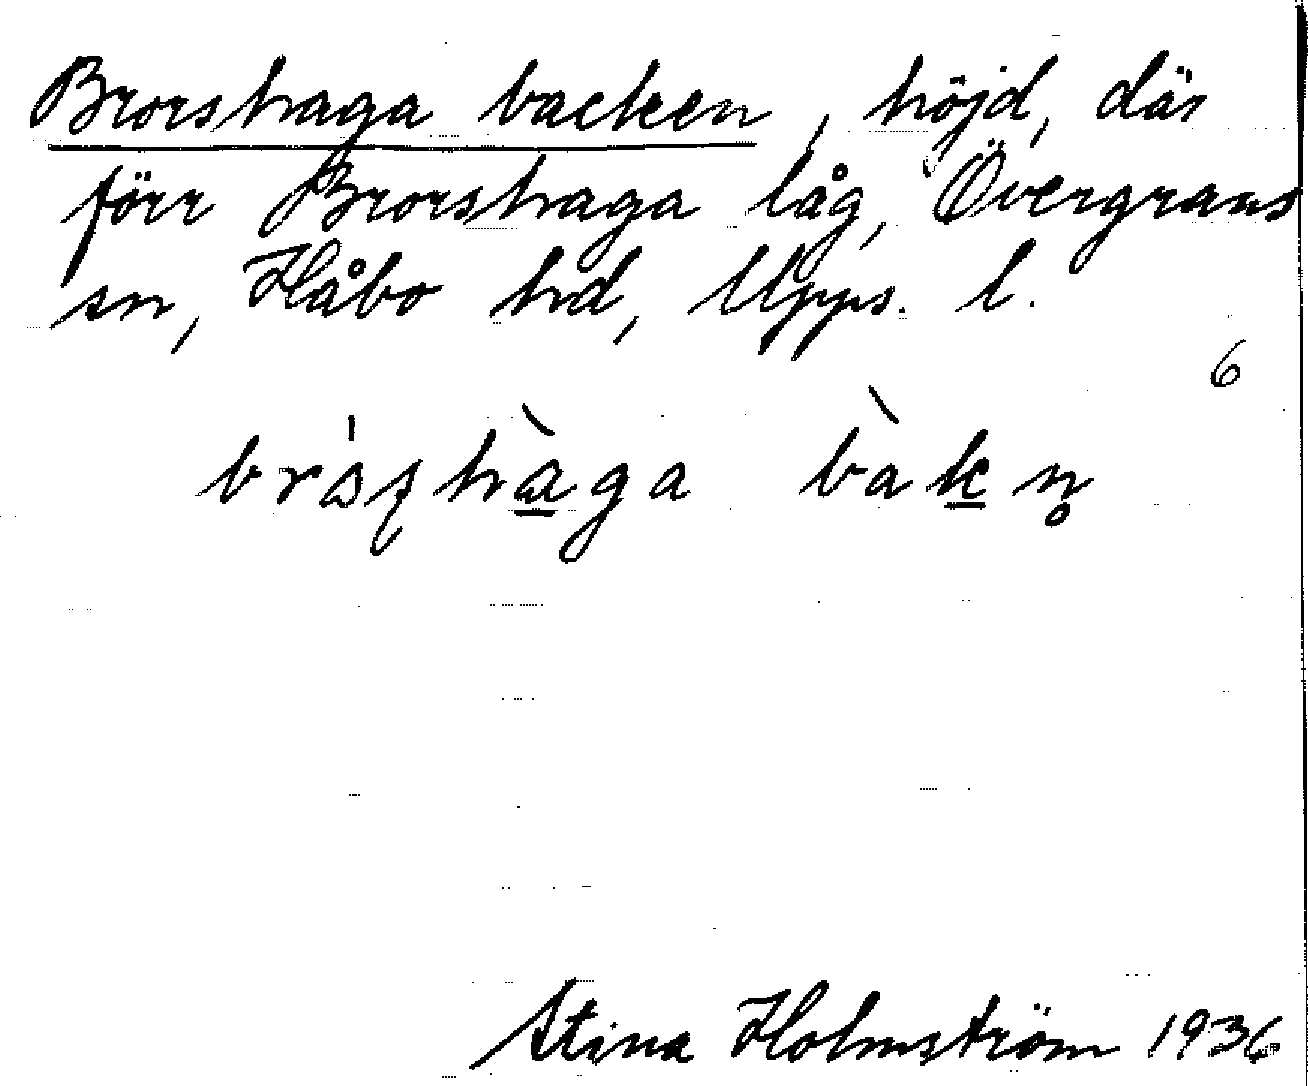 Brorshaga backen, höjd, där
förr Brorshaga låg, Övergrans
sn, Håbo hd, Upps. l.
6
Stina Holmström 1936